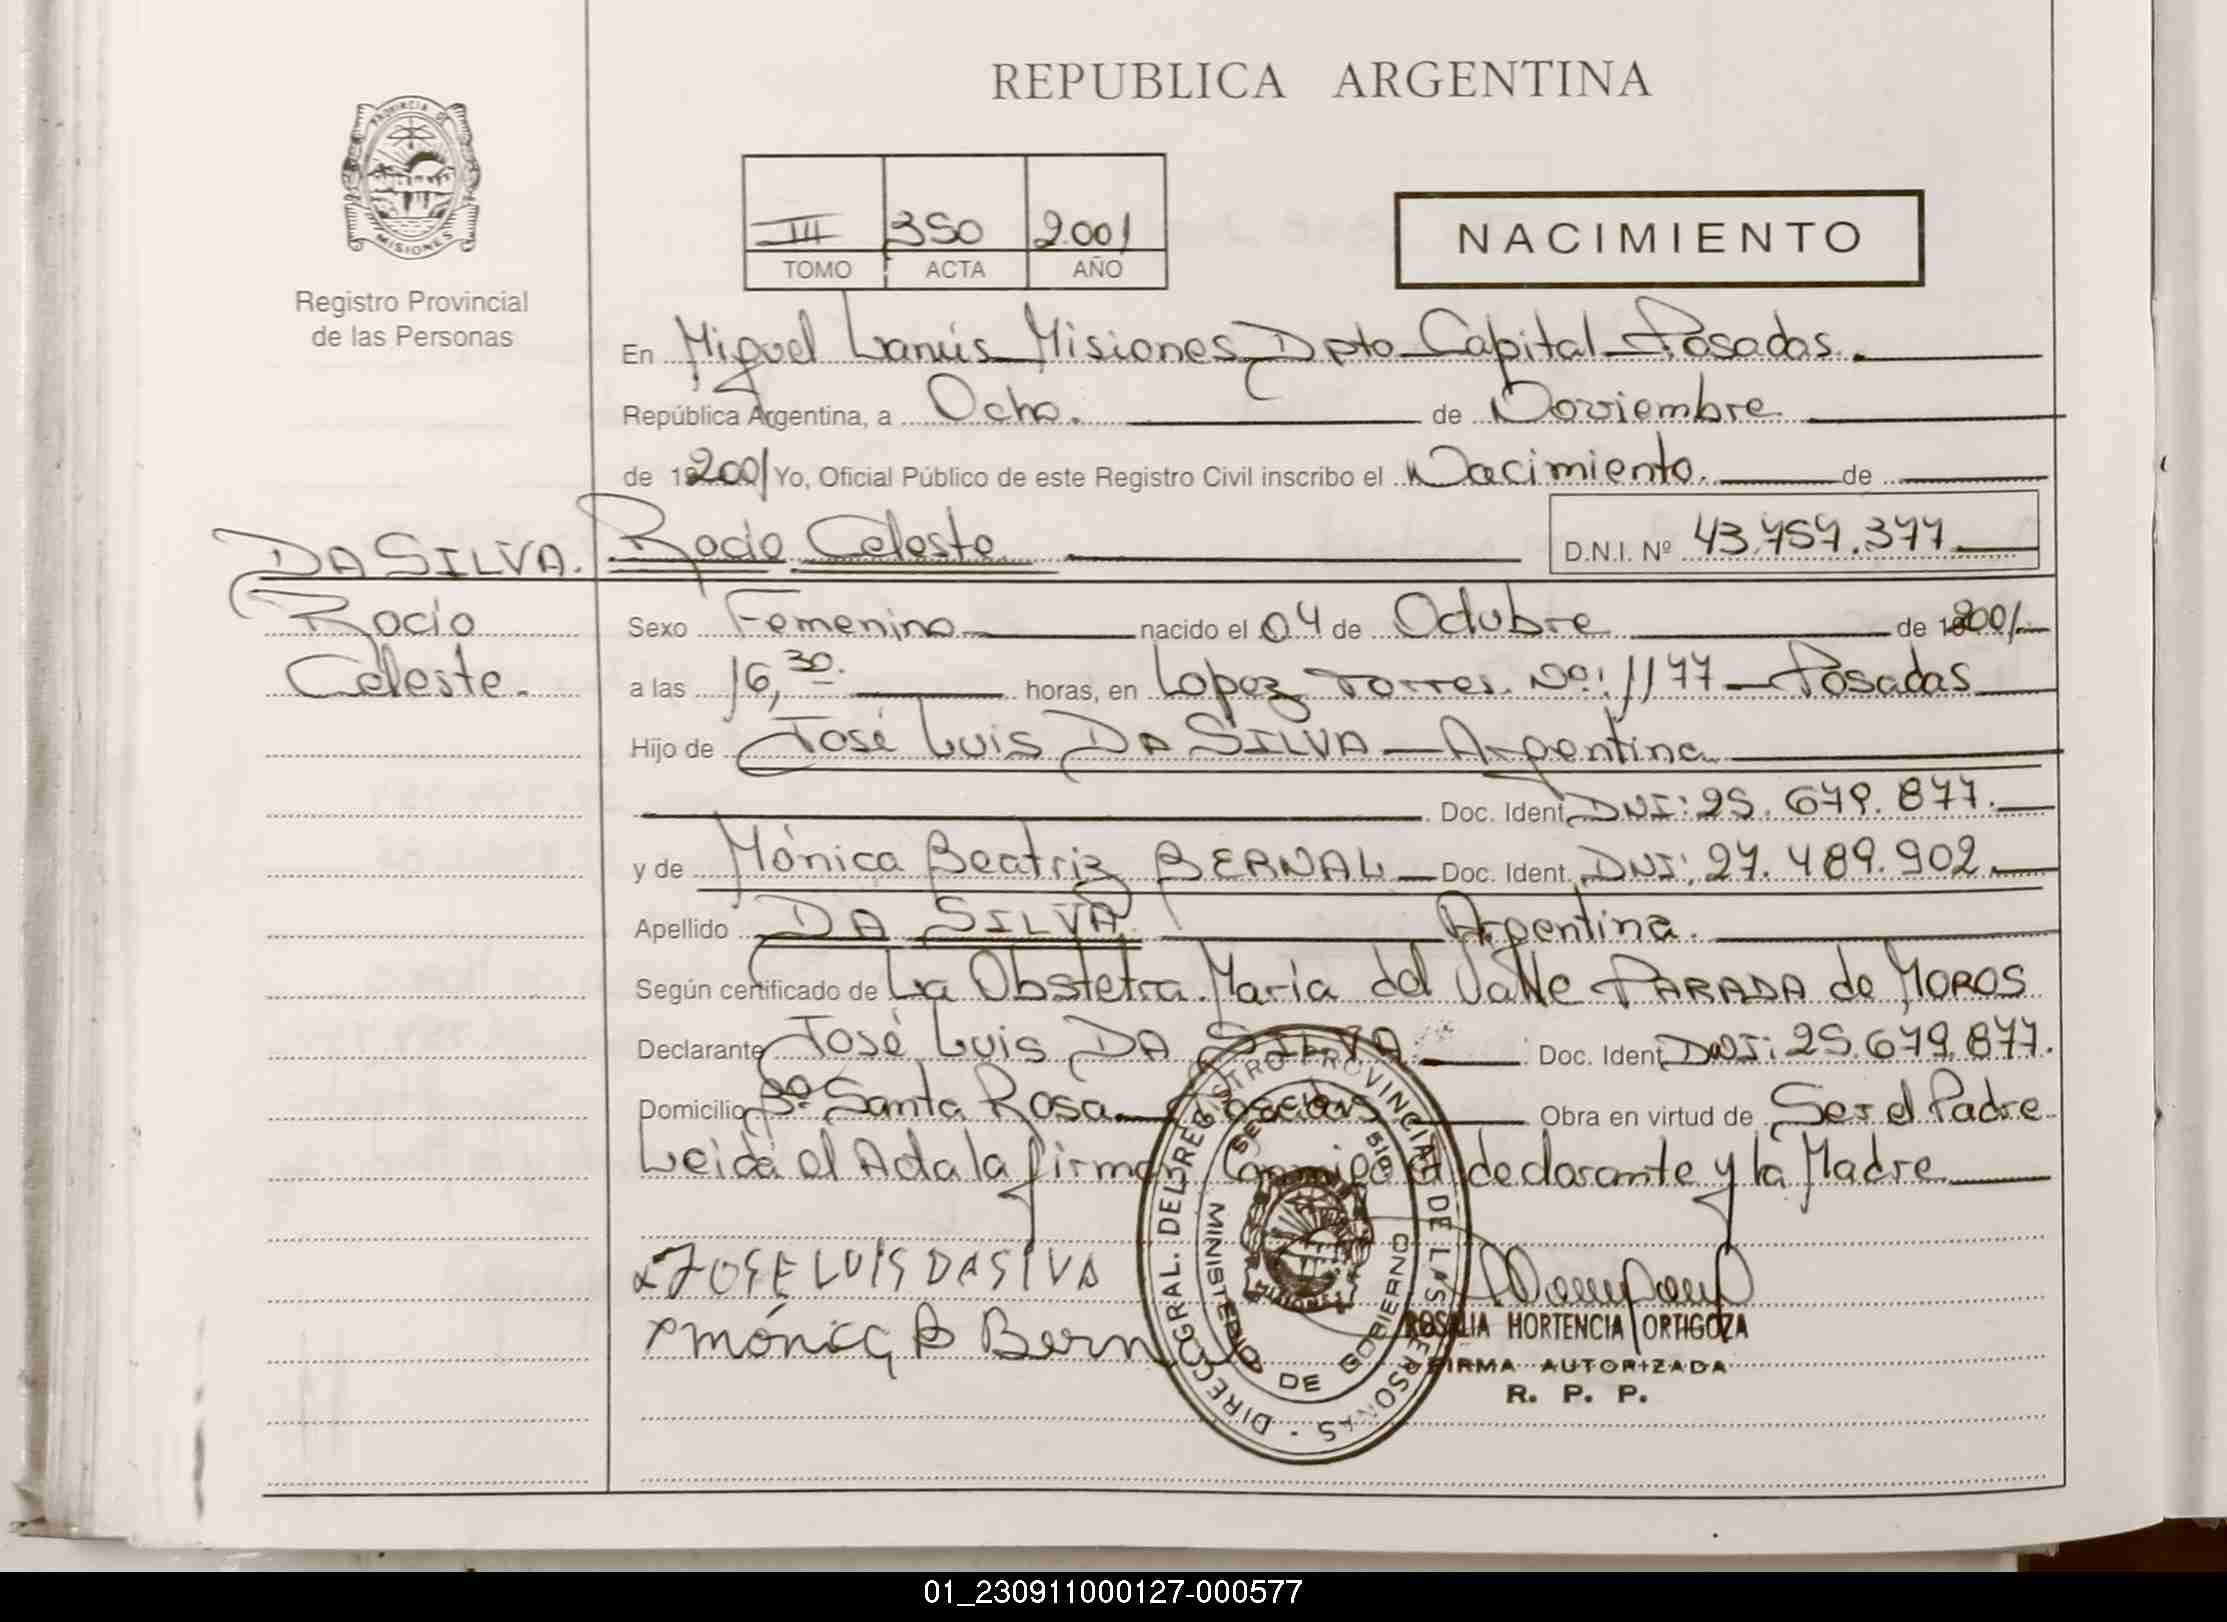 REPUBLICA ARGENTINA
PROVINCIA DE
MISIONES
Registro Provincial
de las Personas
III 350 2001
TOMO ACTA AÑO
NACIMIENTO
En Miguel Lanús Misiones Dpto Capital Posadas.
República Argentina, a Ocho. de Noviembre
de 192001 Yo, Oficial Público de este Registro Civil inscribo el Nacimiento. de
DA SILVA. Rocio Celeste D.N.I. Nº 43.757.377
Rocío
Celeste.
Sexo Femenino nacido el 04 de Octubre de 192001
a las 16,30. horas, en Lopez Torres. Nº: 1177 Posadas
Hijo de José Luis DA SILVA Argentina
Doc. Ident. DNI: 25.679.877.
y de Mónica Beatriz BERNAL Doc. Ident. DNI: 27.489.902.
Apellido DA SILVA Argentina.
Según certificado de La Obstetra María del Valle PARADA de MOROS
Declarante José Luis DA SILVA Doc. Ident. DNI: 25.679.877.
Domicilio Bº Santa Rosa Posadas Obra en virtud de Ser el Padre
Leida el Acta la firman Conmigo el declarante y la Madre
x JOSE LUIS DASIVA
x Mónica B Bern
DIREC. GRAL. DEL REGISTRO PROVINCIAL DE LAS PERSONAS
MINISTERIO DE GOBIERNO
MISIONES
ROSALIA HORTENCIA ORTIGOZA
FIRMA AUTORIZADA
R. P. P.
01_230911000127-000577